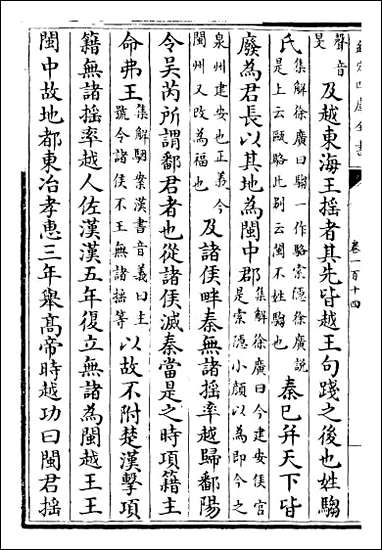 欽定四庫全書
卷一百十四
聲音
旻
及越東海王搖者其先皆越王句踐之後也姓騶
氏
集解徐廣曰騶一作駱索隱徐廣說
是上云甌駱此別云閩不姓騶也
秦已并天下皆
廢為君長以其地為閩中郡
集解徐廣曰今建安侯官
是索隱小顔以為即今之
泉州建安也正義今
閩州又改為福也
及諸侯畔秦無諸搖率越歸鄱陽
令吳芮所謂鄱君者也從諸侯滅秦當是之時項籍主
命弗王
集解駰案漢書音義曰主
號令諸侯不王無諸搖等
以故不附楚漢擊項
籍無諸搖率越人佐漢漢五年復立無諸為閩越王王
閩中故地都東冶孝惠三年舉髙帝時越功曰閩君搖